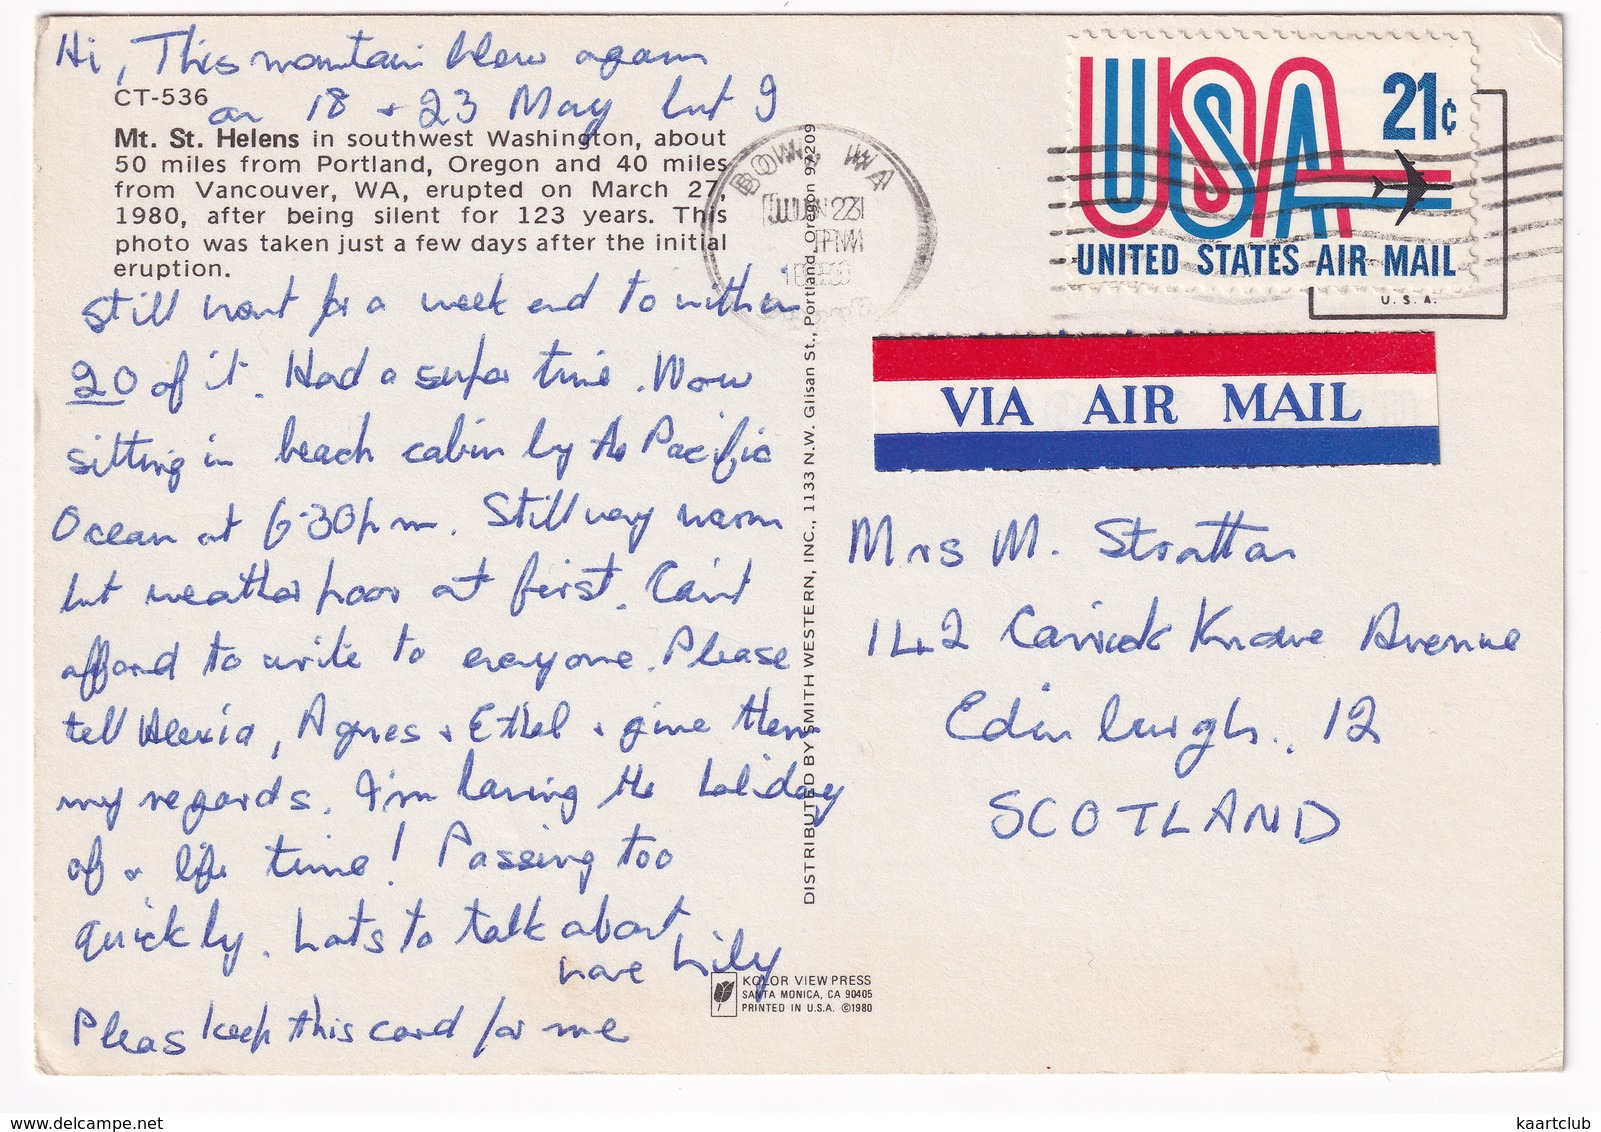 Hi, This mountain blew again
CT-536
on 18 + 23 May but I
Mt. St. Helens in southwest Washington, about
50 miles from Portland, Oregon and 40 miles
from Vancouver, WA, erupted on March 27,
1980, after being silent for 123 years. This
photo was taken just a few days after the initial
eruption.
still went for a week end to within
20 of it. Had a super time. Now
sitting in beach cabin by the Pacific
Ocean at 6.30 pm. Still very warm
but weather poor at first. Can't
afford to write to everyone. Please
tell Alexia, Agnes + Ethel + give them
my regards. I'm having the holiday
of a life time! Passing too
quickly. Lots to talk about
Love Lily
Pleas keep this card for me
DISTRIBUTED BY SMITH WESTERN, INC., 1133 N.W. Glisan St., Portland, Oregon 97209
KOLOR VIEW PRESS
SANTA MONICA, CA 90405
PRINTED IN U.S.A. ©1980
WA
USA
21¢
UNITED STATES AIR MAIL
U.S.A.
VIA AIR MAIL
Mrs M. Stratton
142 Carrick Knowe Avenue
Edinburgh. 12
SCOTLAND
kaartclub